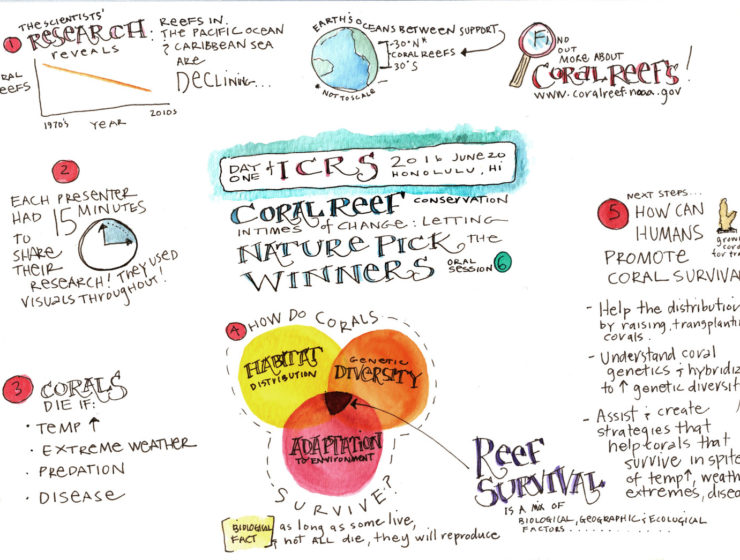 1
THE SCIENTISTS'
RESEARCH:
REVEALS
REEFS IN:
THE PACIFIC OCEAN
& CARIBBEAN SEA
ARE
DECLINING...
RAL
REEFS
1970'S YEAR 2010S
EARTH'S OCEANS BETWEEN SUPPORT
30°N
CORAL REEFS
30°S
* NOT TO SCALE
FIND
OUT
MORE ABOUT
CORAL REEFS!
www.coralreef.noaa.gov
2
EACH PRESENTER
HAD 15 MINUTES
TO
SHARE
THEIR
RESEARCH! THEY USED
VISUALS THROUGHOUT!
DAY
ONE of ICRS 2016 JUNE 20
HONOLULU, HI
CORAL REEF CONSERVATION
IN TIMES of CHANGE: LETTING
NATURE PICK THE
WINNERS ORAL
SESSION 6
3 CORALS
DIE IF:
· TEMP ↑
· EXTREME WEATHER
· PREDATION
· DISEASE
4 HOW DO CORALS
HABITAT
DISTRIBUTION
GENETIC
DIVERSITY
ADAPTATION
TO ENVIRONMENT
SURVIVE?
BIOLOGICAL
FACT
as long as some live,
not ALL die, they will reproduce
REEF
SURVIVAL
IS A MIX OF
BIOLOGICAL, GEOGRAPHIC & ECOLOGICAL
FACTORS............
5
NEXT STEPS...
HOW CAN
HUMANS
PROMOTE
CORAL SURVIVA
grow
cor
for tra
- Help the distribution
by raising, transplanti
corals.
- Understand coral
genetics & hybridiz
to ↑ genetic diversit
- Assist & create
strategies that
help corals that
survive in spite
of temp↑, weath
extremes, disea